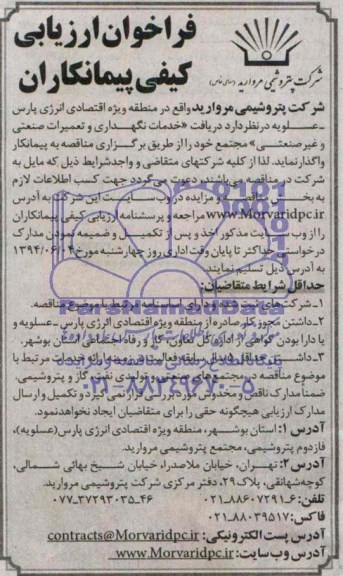 فراخوان ارزیابی
کیفی پیمانکاران
شرکت پتروشیمی مروارید (سهامی خاص)
شرکت پتروشیمی مروارید واقع در منطقه ویژه اقتصادی انرژی پارس
ـ عسلویه در نظر دارد دریافت «خدمات نگهداری و تعمیرات صنعتی
و غیر صنعتی» مجتمع خود را از طریق برگزاری مناقصه به پیمانکار
واگذار نماید. لذا از کلیه شرکتهای متقاضی و واجد شرایط ذیل که مایل به
شرکت در مناقصه می‌باشند، دعوت می‌گردد جهت کسب اطلاعات لازم
به بخش مناقصه و مزایده در وب سایت این شرکت به آدرس
www.Morvaridpc.ir مراجعه و پرسشنامه ارزیابی کیفی پیمانکاران
را از وب سایت مذکور اخذ و پس از تکمیل و ضمیمه نمودن مدارک
درخواستی حداکثر تا پایان وقت اداری روز چهارشنبه مورخ ۱۳۹۴/۰۶/۰۴
به آدرس ذیل تسلیم نمایند.
حداقل شرایط متقاضیان:
۱ـ شرکت‌های ثبت شده و دارای اساسنامه مرتبط با موضوع مناقصه.
۲ـ داشتن مجوز کار صادره از منطقه ویژه اقتصادی انرژی پارس ـ عسلویه و
یا دارا بودن گواهی از اداره کل تعاون، کار و رفاه اجتماعی استان بوشهر.
۳ـ داشتن حداقل سال سابقه فعالیت در زمینه ارائه خدمات مرتبط با
موضوع مناقصه در مجتمع‌های صنعتی و تولیدی نفت، گاز و پتروشیمی.
ضمناً مدارک ناقص و مخدوش مورد بررسی قرار نمی‌گیرد و تکمیل و ارسال
مدارک ارزیابی هیچگونه حقی را برای متقاضیان ایجاد نخواهد نمود.
آدرس ۱: استان بوشهر، منطقه ویژه اقتصادی انرژی پارس (عسلویه)،
فاز دوم پتروشیمی، مجتمع پتروشیمی مروارید.
آدرس ۲: تهران، خیابان ملاصدرا، خیابان شیخ بهائی شمالی،
کوچه شهائقی، پلاک ۲۹، دفتر مرکزی شرکت پتروشیمی مروارید.
تلفن: ۶-۰۲۱-۸۸۶۰۷۲۹۱ ۴۶-۰۷۷-۳۷۲۹۳۰۳۵
فاکس: ۰۲۱-۸۸۰۳۹۵۱۷
آدرس پست الکترونیکی: contracts@Morvaridpc.ir
آدرس وب سایت: www.Morvaridpc.ir
ParsNamadData
پایگاه اطلاع رسانی مناقصه و مزایده
۰۲۱-۸۸۳۴۹۶۷۰-۵